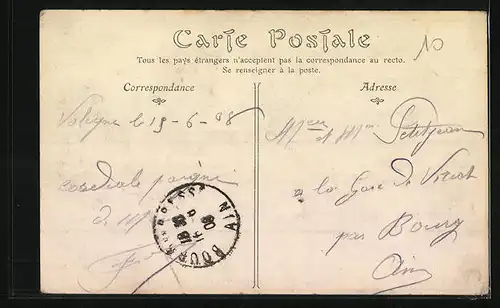 Carte Postale
10
Tous les pays étrangers n'acceptent pas la correspondance au recto.
Se renseigner à la poste.
Correspondance
Adresse
le 19-6-08
cordiale poignée
et Mme Petitjean
à la Gare de
par Bourg
Ain
BOURG
AIN